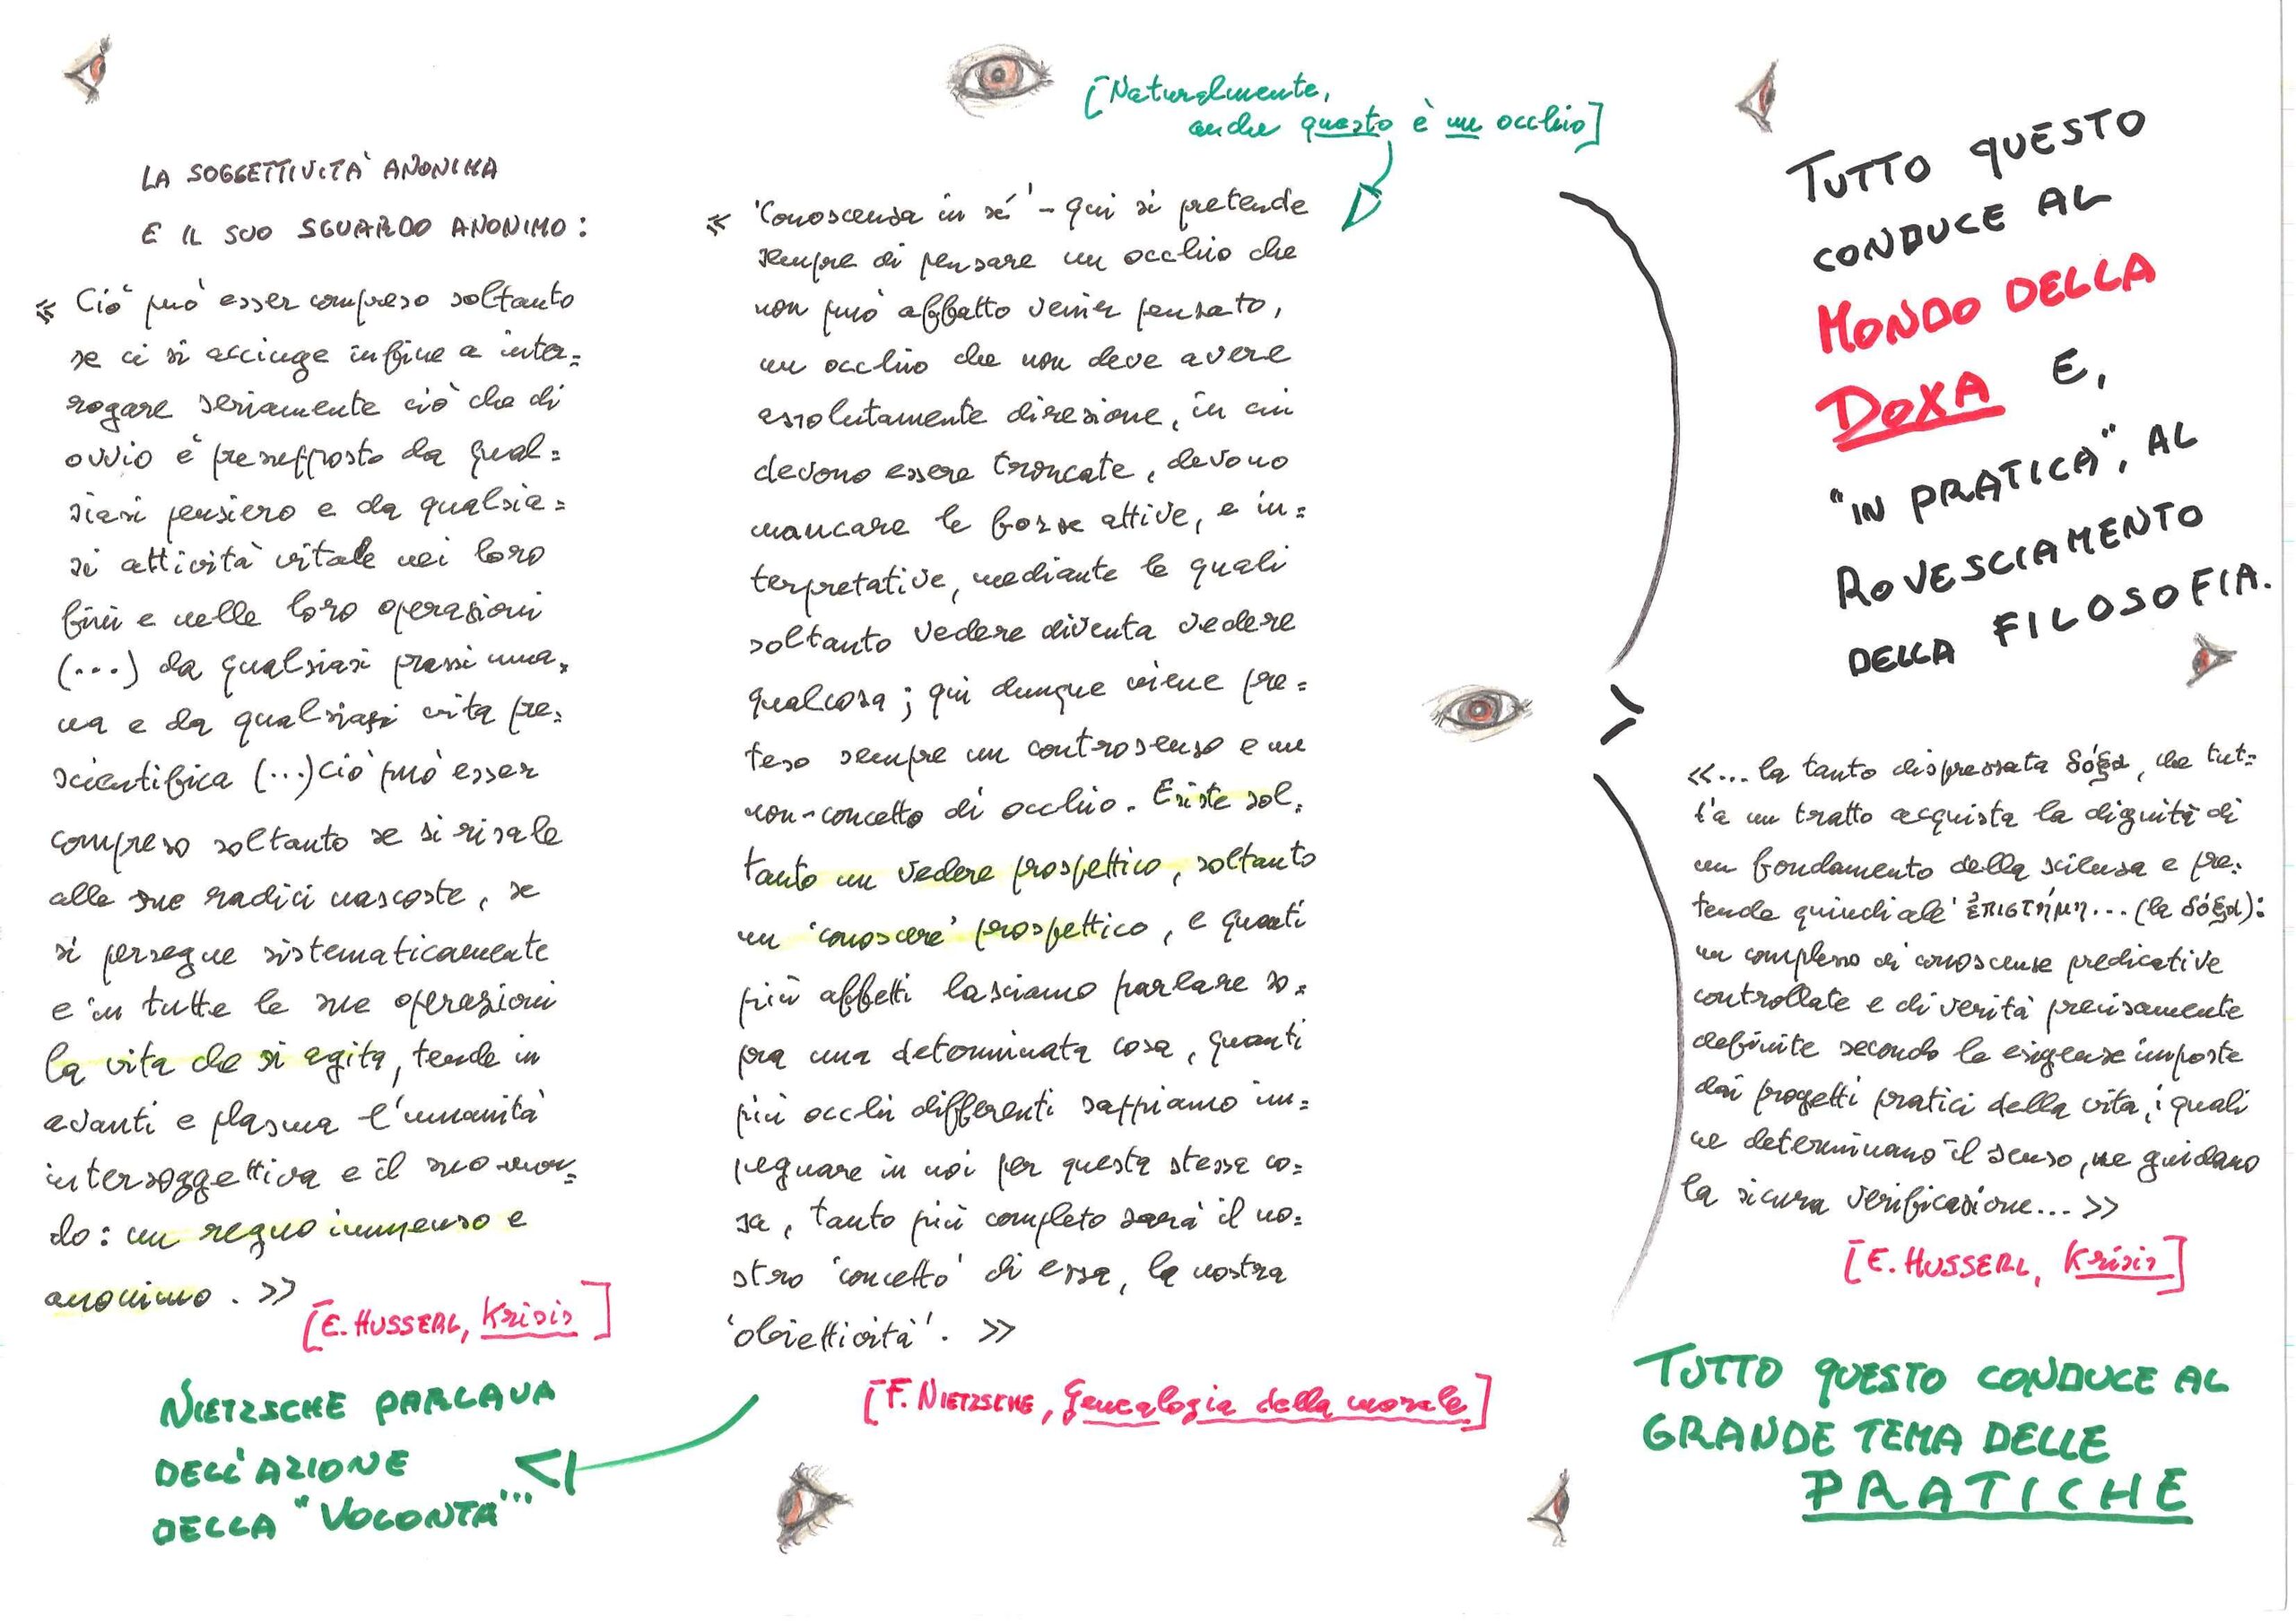 LA SOGGETTIVITÀ ANONIMA
E IL SUO SGUARDO ANONIMO:
« Ciò può esser compreso soltanto
se ci si accinge infine a inter=
rogare seriamente ciò che di
ovvio è presupposto da qual=
siasi pensiero e da qualsia=
si attività vitale nei loro
fini e nelle loro operazioni
(...) da qualsiasi prassi uma=
na e da qualsiasi vita pre=
scientifica (...) Ciò può esser
compreso soltanto se si risale
alle sue radici nascoste, se
si persegue sistematicamente
e in tutte le sue operazioni
la vita che si agita, tende in
avanti e plasma l'umanità
intersoggettiva e il suo mon=
do: un regno immenso e
anonimo. »
[E. HUSSERL, Krisis]
NIETZSCHE PARLAVA
DELL'AZIONE
DELLA "VOLONTÀ"...
[Naturalmente,
anche questo è un occhio]
« 'Conoscenza in sé' - qui si pretende
sempre di pensare un occhio che
non può affatto venir pensato,
un occhio che non deve avere
assolutamente direzione, in cui
devono essere troncate, devono
mancare le forze attive, e in=
terpretative, mediante le quali
soltanto vedere diventa vedere
qualcosa; qui dunque viene pre=
teso sempre un controsenso e un
non-concetto di occhio. Esiste sol=
tanto un vedere prospettico, soltanto
un 'conoscere' prospettico, e quanti
più affetti lasciamo parlare so=
pra una determinata cosa, quanti
più occhi differenti sappiamo im=
pegnare in noi per questa stessa co=
sa, tanto più completo sarà il no=
stro 'concetto' di essa, la nostra
'obiettività'. »
[F. NIETZSCHE, Genealogia della morale]
TUTTO QUESTO
CONDUCE AL
MONDO DELLA
DOXA E,
"IN PRATICA", AL
ROVESCIAMENTO
DELLA FILOSOFIA.
«... la tanto disprezzata δόξα, che tut=
t'a un tratto acquista la dignità di
un fondamento della scienza e pre=
tende quindi all'ἐπιστήμη... (la δόξα):
un complesso di conoscenze predicative
controllate e di verità precisamente
definite secondo le esigenze imposte
dai progetti pratici della vita, i quali
ne determinano il senso, ne guidano
la sicura verificazione... »
[E. HUSSERL, Krisis]
TUTTO QUESTO CONDUCE AL
GRANDE TEMA DELLE
PRATICHE